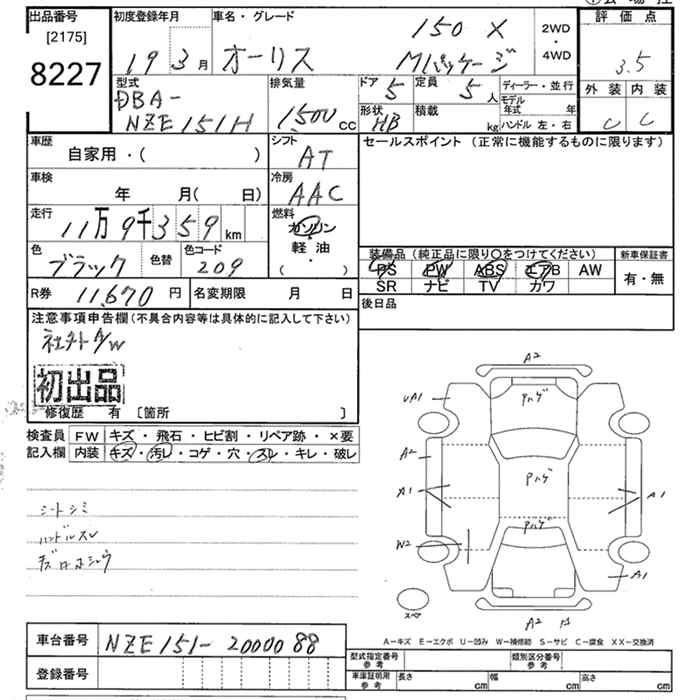 出品番号
[2175]
8227
初度登録年月
19 3 月
車名・グレード
オーリス
150 X
Mパッケージ
2WD
・
4WD
評価点
3.5
外装
内装
C
C
型式
DBA-
NZE151H
排気量
1500 cc
ドア
5
定員
5 人
ディーラー・並行
形状
HB
積載
kg
モデル年式
年
ハンドル 左・右
車歴
自家用・(  )
シフト
AT
セールスポイント (正常に機能するものに限ります)
車検
年 月( 日)
冷房
AAC
走行
11万9千359 km
燃料
ガソリン
軽油
・
(  )
色
ブラック
色替
色コード
209
装備品 (純正品に限り○をつけてください)
PS PW ABS エアB AW
SR ナビ TV カワ
新車保証書
有・無
R券
11,670 円
名変期限
月 日
後日品
注意事項申告欄(不具合内容等は具体的に記入して下さい)
社外A/W
初出品
修復歴 有 [箇所 ]
検査員
記入欄
FW キズ・飛石・ヒビ割・リペア跡・×要
内装 キズ・汚レ・コゲ・穴・スレ・キレ・破レ
シートシミ
ハンドルスレ
A2
Pハゲ
UA1
A2
Pハゲ
A1
A1
Pハゲ
W2
A1
スペア
A2
A-キズ E-エクボ U-凹み W-補修跡 S-サビ C-腐食 XX-交換済
車台番号
NZE151-2000088
登録番号
型式指定番号
参考
類別区分番号
参考
車庫証明用
参考
長さ
cm
幅
cm
高さ
cm